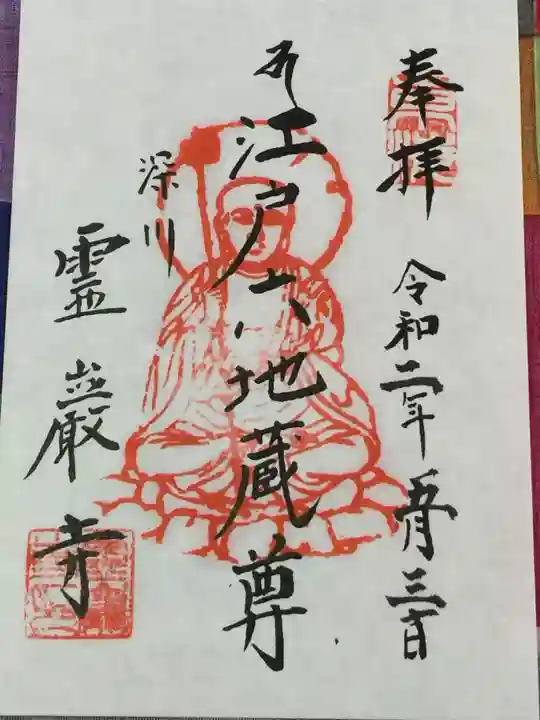 奉拝
令和二年五月三十日
江戸六地蔵尊
深川
霊巌寺